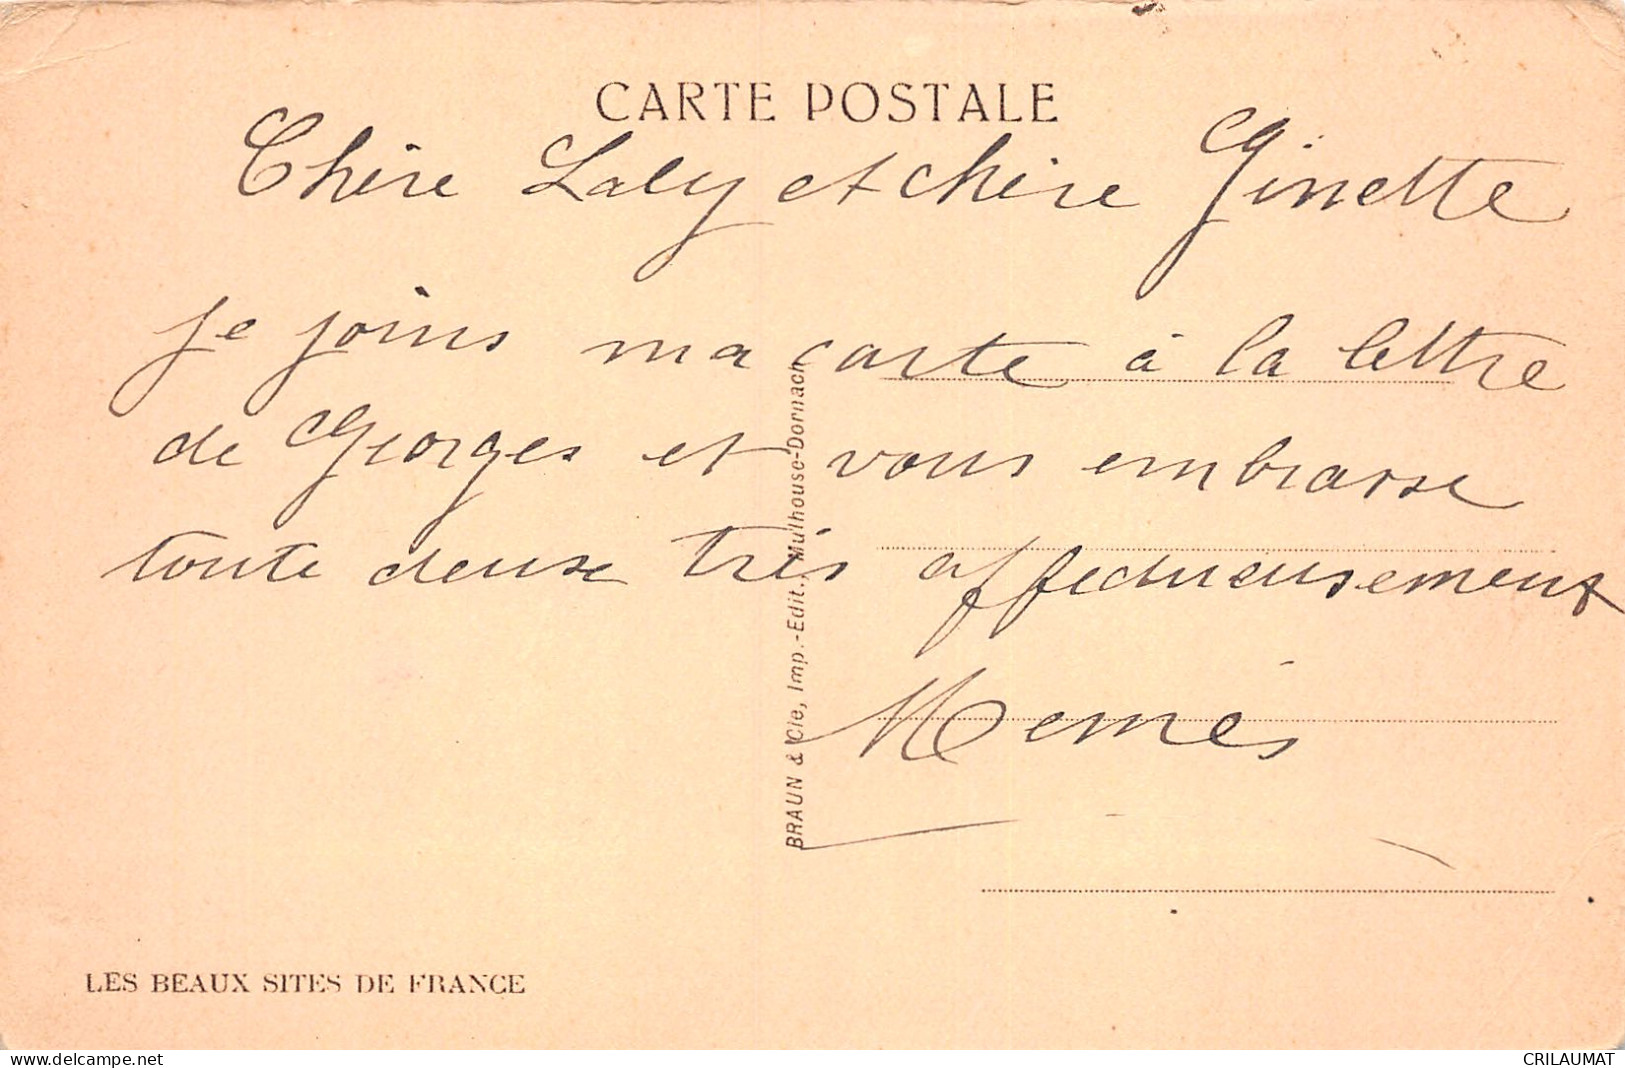 CARTE POSTALE
Chère Laly et chère Ginette
je joins ma carte à la lettre
de Georges et vous embrasse
toute deuse très affectueusement
Memés
BRAUN & Cie, Imp.-Edit., Mulhouse-Dornach
LES BEAUX SITES DE FRANCE
delcampe.net
CRILAUMAT